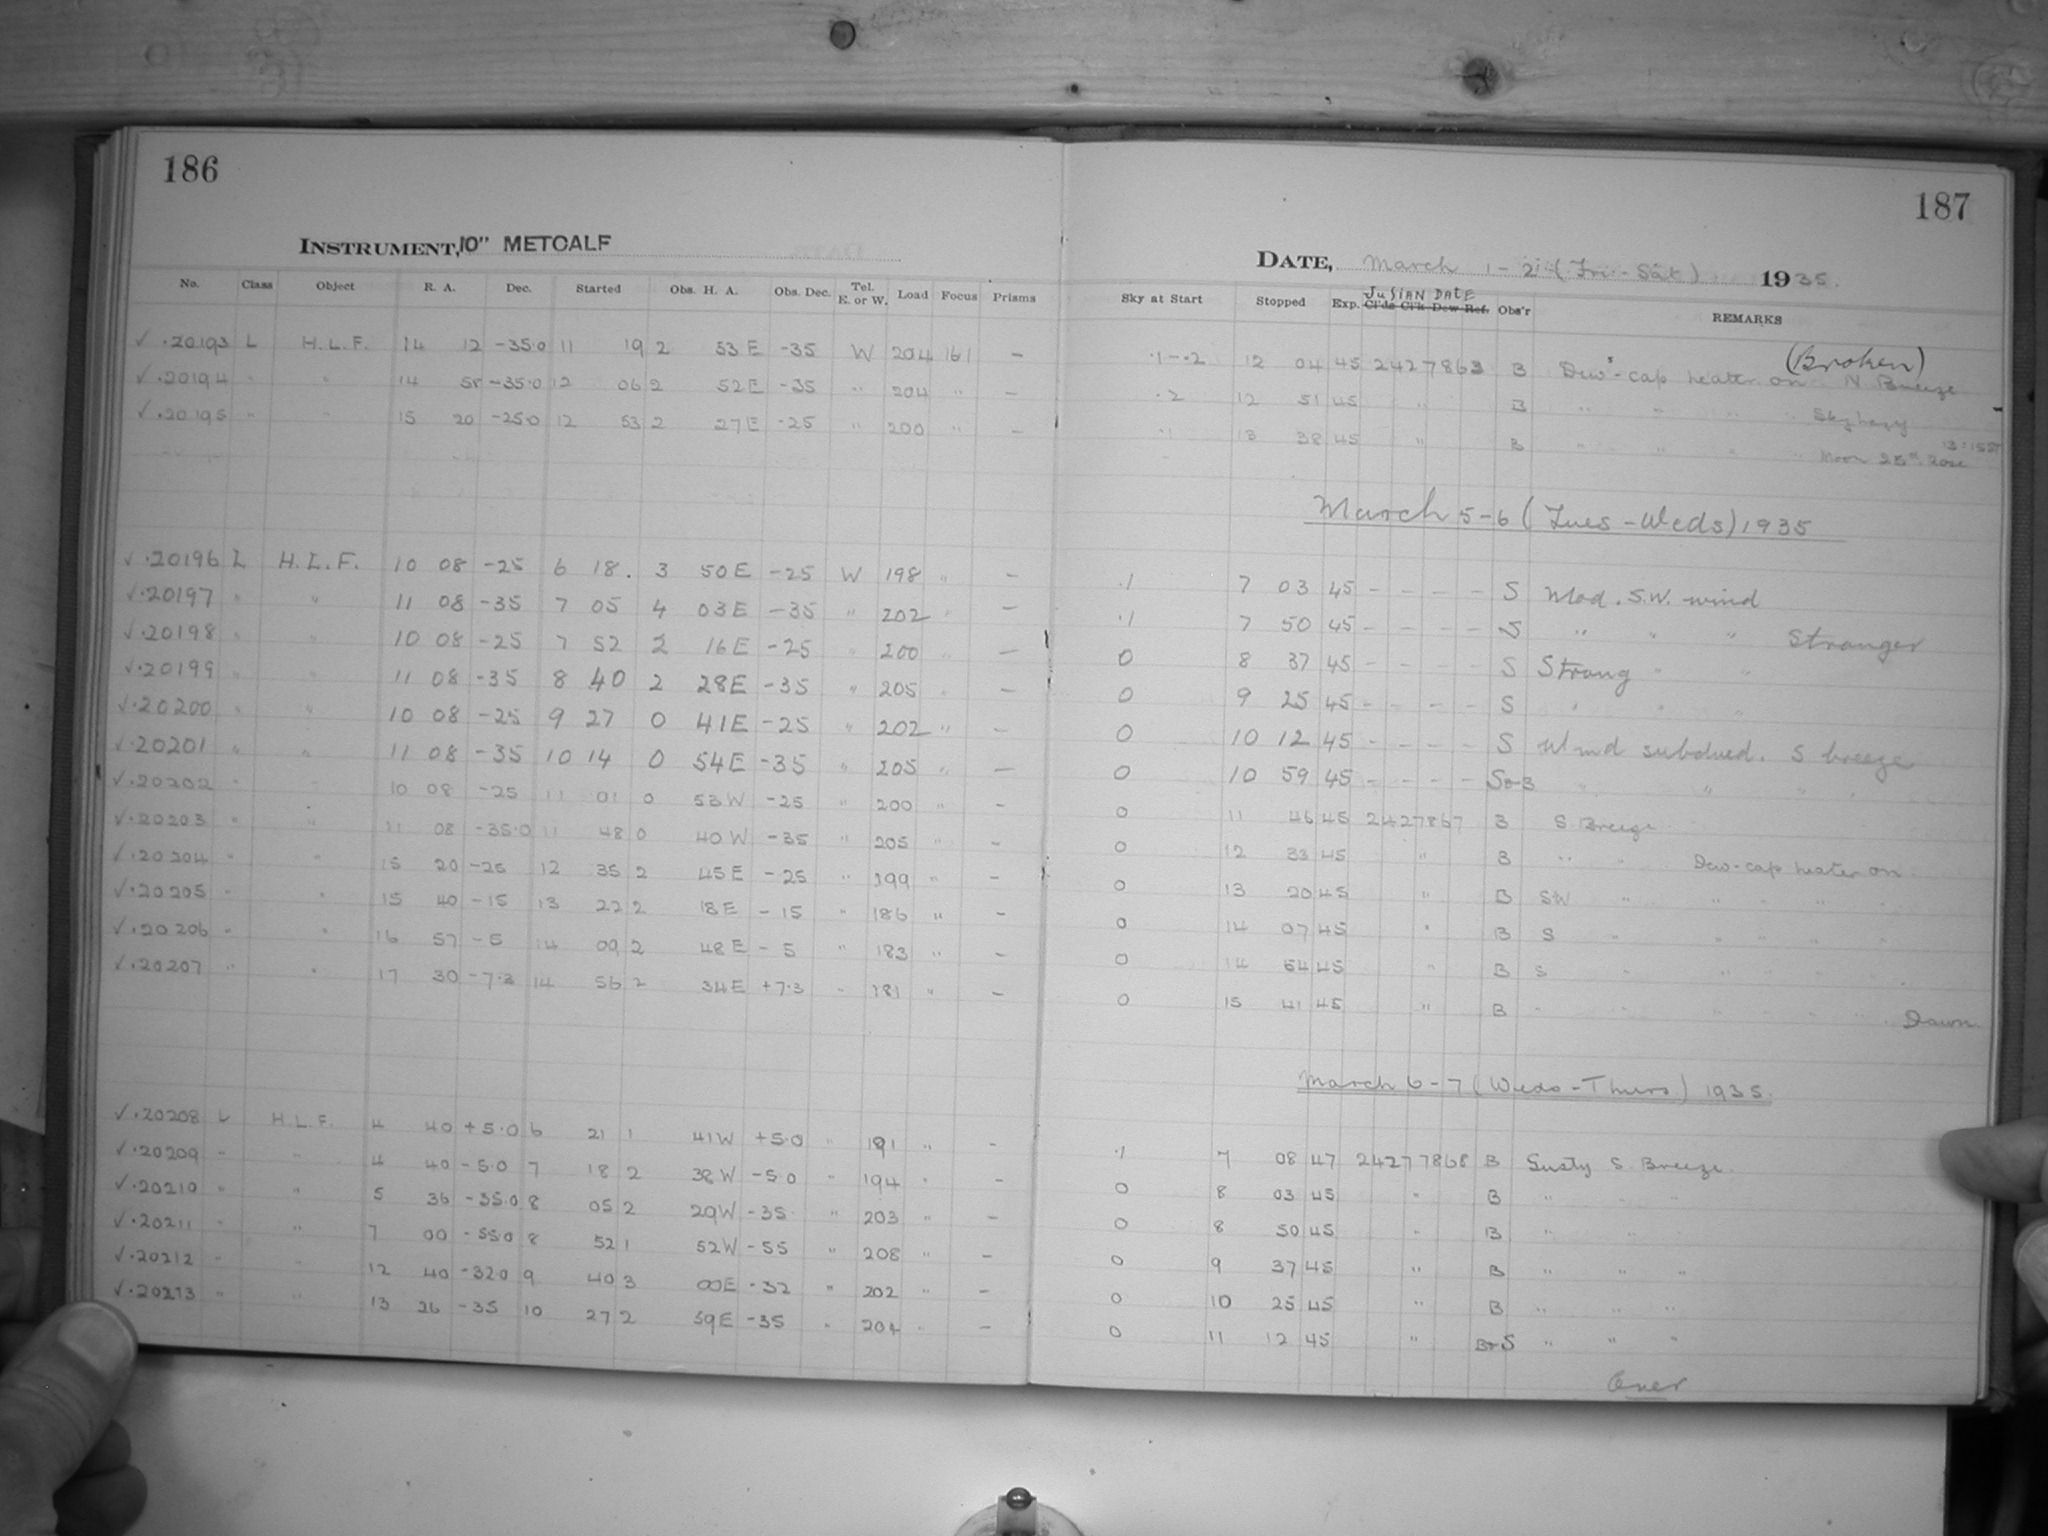 186
187
INSTRUMENT, 10" METCALF
DATE, March 1-2 (Fri-Sat) 1935.
No. Class Object R. A. Dec. Started Obs. H. A. Obs. Dec. Tel. E. or W. Load Focus Prisms Sky at Start Stopped Exp. JULIAN DATE Cl'ds Cl'k Dew Ref. Obs'r REMARKS
✓ .20193 L H.L.F. 14 12 -35.0 11 19 2 53 E -35 W 204 161 - .1-.2 12 04 45 2427863 B Dew-cap heater on N Breeze (Broken)
✓ .20194 " " 14 58 -35.0 12 06 2 52E -35 " 204 " - .2 12 51 45 " B " " " " Sky hazy
✓ .20195 " " 15 20 -25.0 12 53 2 27E -25 " 200 " - 13 38 45 " B " " " " Moon rose
March 5-6 (Tues-Weds) 1935
✓ .20196 L H.L.F. 10 08 -25 6 18. 3 50E -25 W 198 " - .1 7 03 45 - - - - S Mod. S.W. wind
✓ .20197 " " 11 08 -35 7 05 4 03E -35 " 202 " - .1 7 50 45 - - - - S " " " Stronger
✓ .20198 " " 10 08 -25 7 52 2 16E -25 " 200 " - 0 8 37 45 - - - - S Strong " "
✓ .20199 " " 11 08 -35 8 40 2 28E -35 " 205 " - 0 9 25 45 - - - - S " " "
✓ .20200 " " 10 08 -25 9 27 0 41E -25 " 202 " - 0 10 12 45 - - - - S Wind subdued. S breeze
✓ .20201 " " 11 08 -35 10 14 0 54E -35 " 205 " - 0 10 59 45 - - - - S+B " " " "
✓ .20202 " " 10 08 -25 11 01 0 53W -25 " 200 " - 0 11 46 45 2427867 B S. Breeze
✓ .20203 " " 11 08 -35.0 11 48 0 40W -35 " 205 " - 0 12 33 45 " B " " Dew-cap heater on
✓ .20204 " " 15 20 -25 12 35 2 45E -25 " 199 " - 0 13 20 45 " B SW " " " " "
✓ .20205 " " 15 40 -15 13 22 2 18E -15 " 186 " - 0 14 07 45 " B S " " " " "
✓ .20206 " " 16 57 -5 14 09 2 48E -5 " 183 " - 0 14 54 45 " B S " " "
✓ .20207 " " 17 30 -7.3 14 56 2 34E +7.3 " 181 " - 0 15 41 45 " B " " " " " " Dawn
March 6-7 (Weds-Thurs) 1935.
✓ .20208 L H.L.F. 4 40 +5.0 6 21 1 41W +5.0 " 191 " - .1 7 08 47 24277868 B Gusty S. Breeze.
✓ .20209 " " 4 40 -5.0 7 18 2 38W -5.0 " 194 " - 0 8 03 45 " B " " "
✓ .20210 " " 5 36 -35.0 8 05 2 29W -35 " 203 " - 0 8 50 45 " B " " "
✓ .20211 " " 7 00 -55.0 8 52 1 52W -55 " 208 " - 0 9 37 45 " B " " "
✓ .20212 " " 12 40 -32.0 9 40 3 00E -32 " 202 " - 0 10 25 45 " B " " "
✓ .20213 " " 13 26 -35 10 27 2 59E -35 " 204 " - 0 11 12 45 " B+S " " "
Over